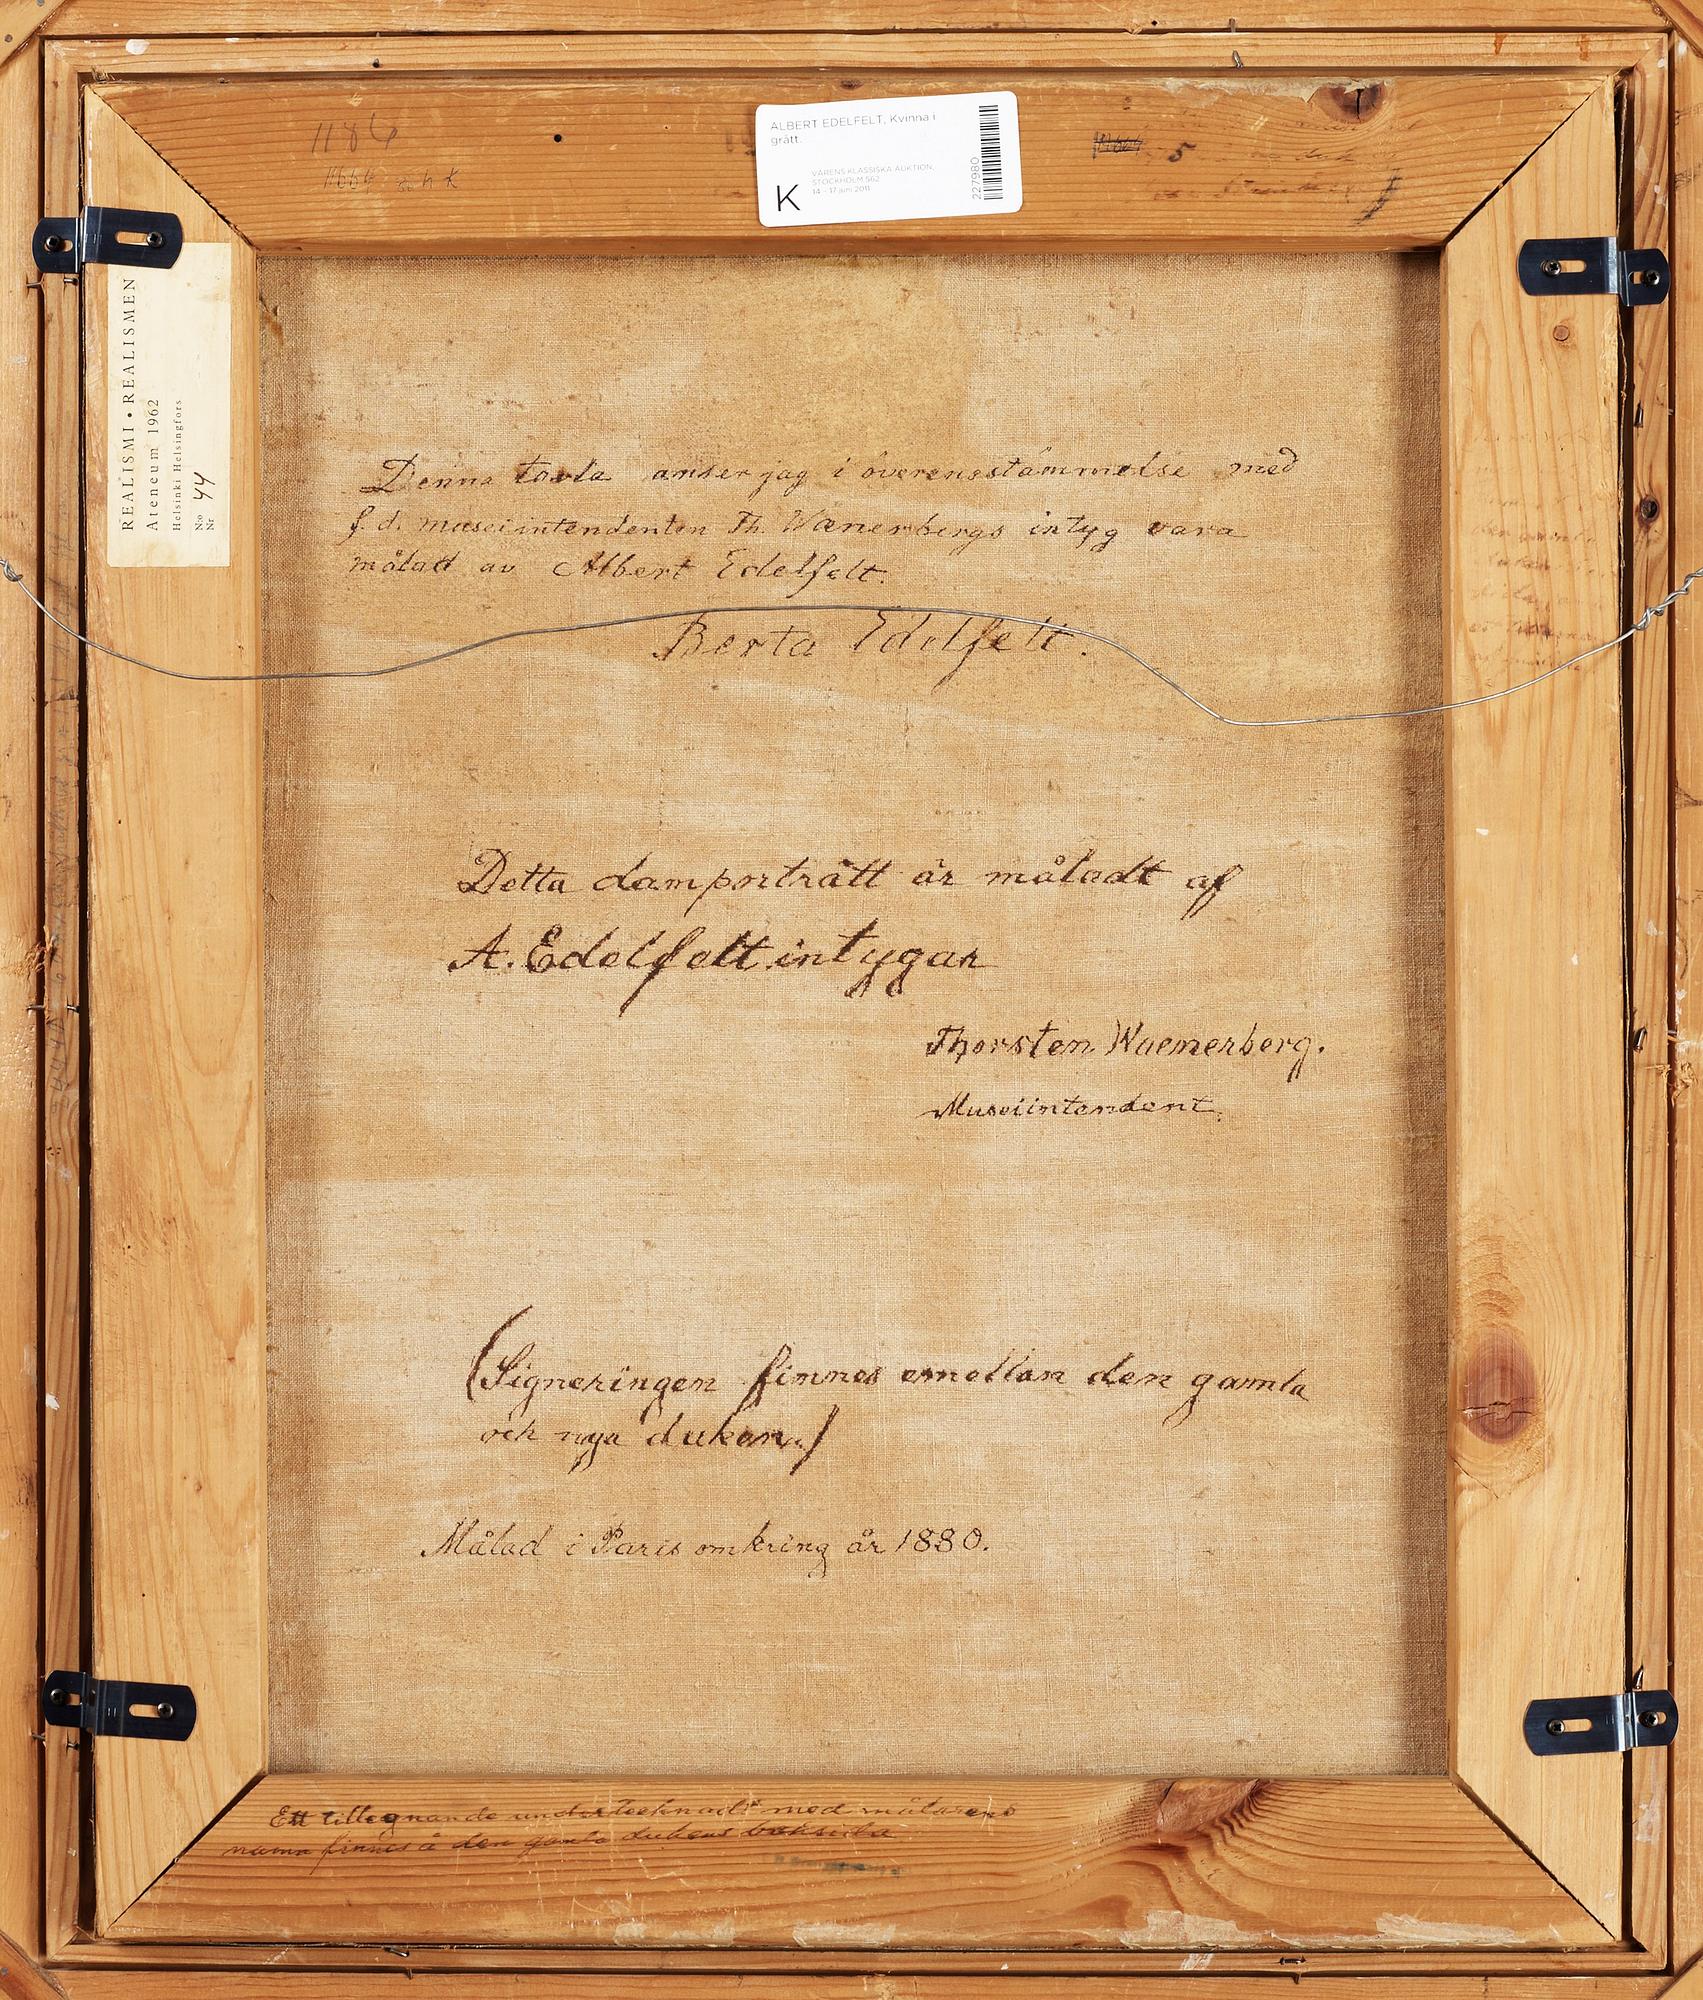 1186
ALBERT EDELFELT, Kvinna i
grått.
K
VÅRENS KLASSISKA AUKTION,
STOCKHOLM 562
14 - 17 juni 2011
227980
5
REALISMI • REALISMEN
Ateneum 1962
Helsinki Helsingfors
N:o
Nr
44
Denna tavla anser jag i överensstämmelse med
f d. museiintendenten Th. Wænerbergs intyg vara
målad av Albert Edelfelt.
Berta Edelfelt.
Detta damporträtt är måladt af
A. Edelfelt intygar
Thorsten Waenerberg.
Museiintendent.
(Signeringen finnes emellan den gamla
och nya duken.)
Målad i Paris omkring år 1880.
Ett tillegnande undertecknadt med målarens
namn finnes å den gamla dukens baksida